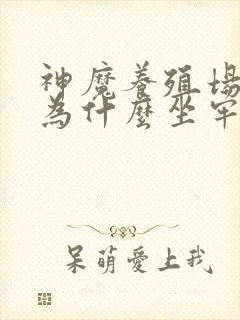 神魔養殖場
為什麼坐牢
呆萌愛上我